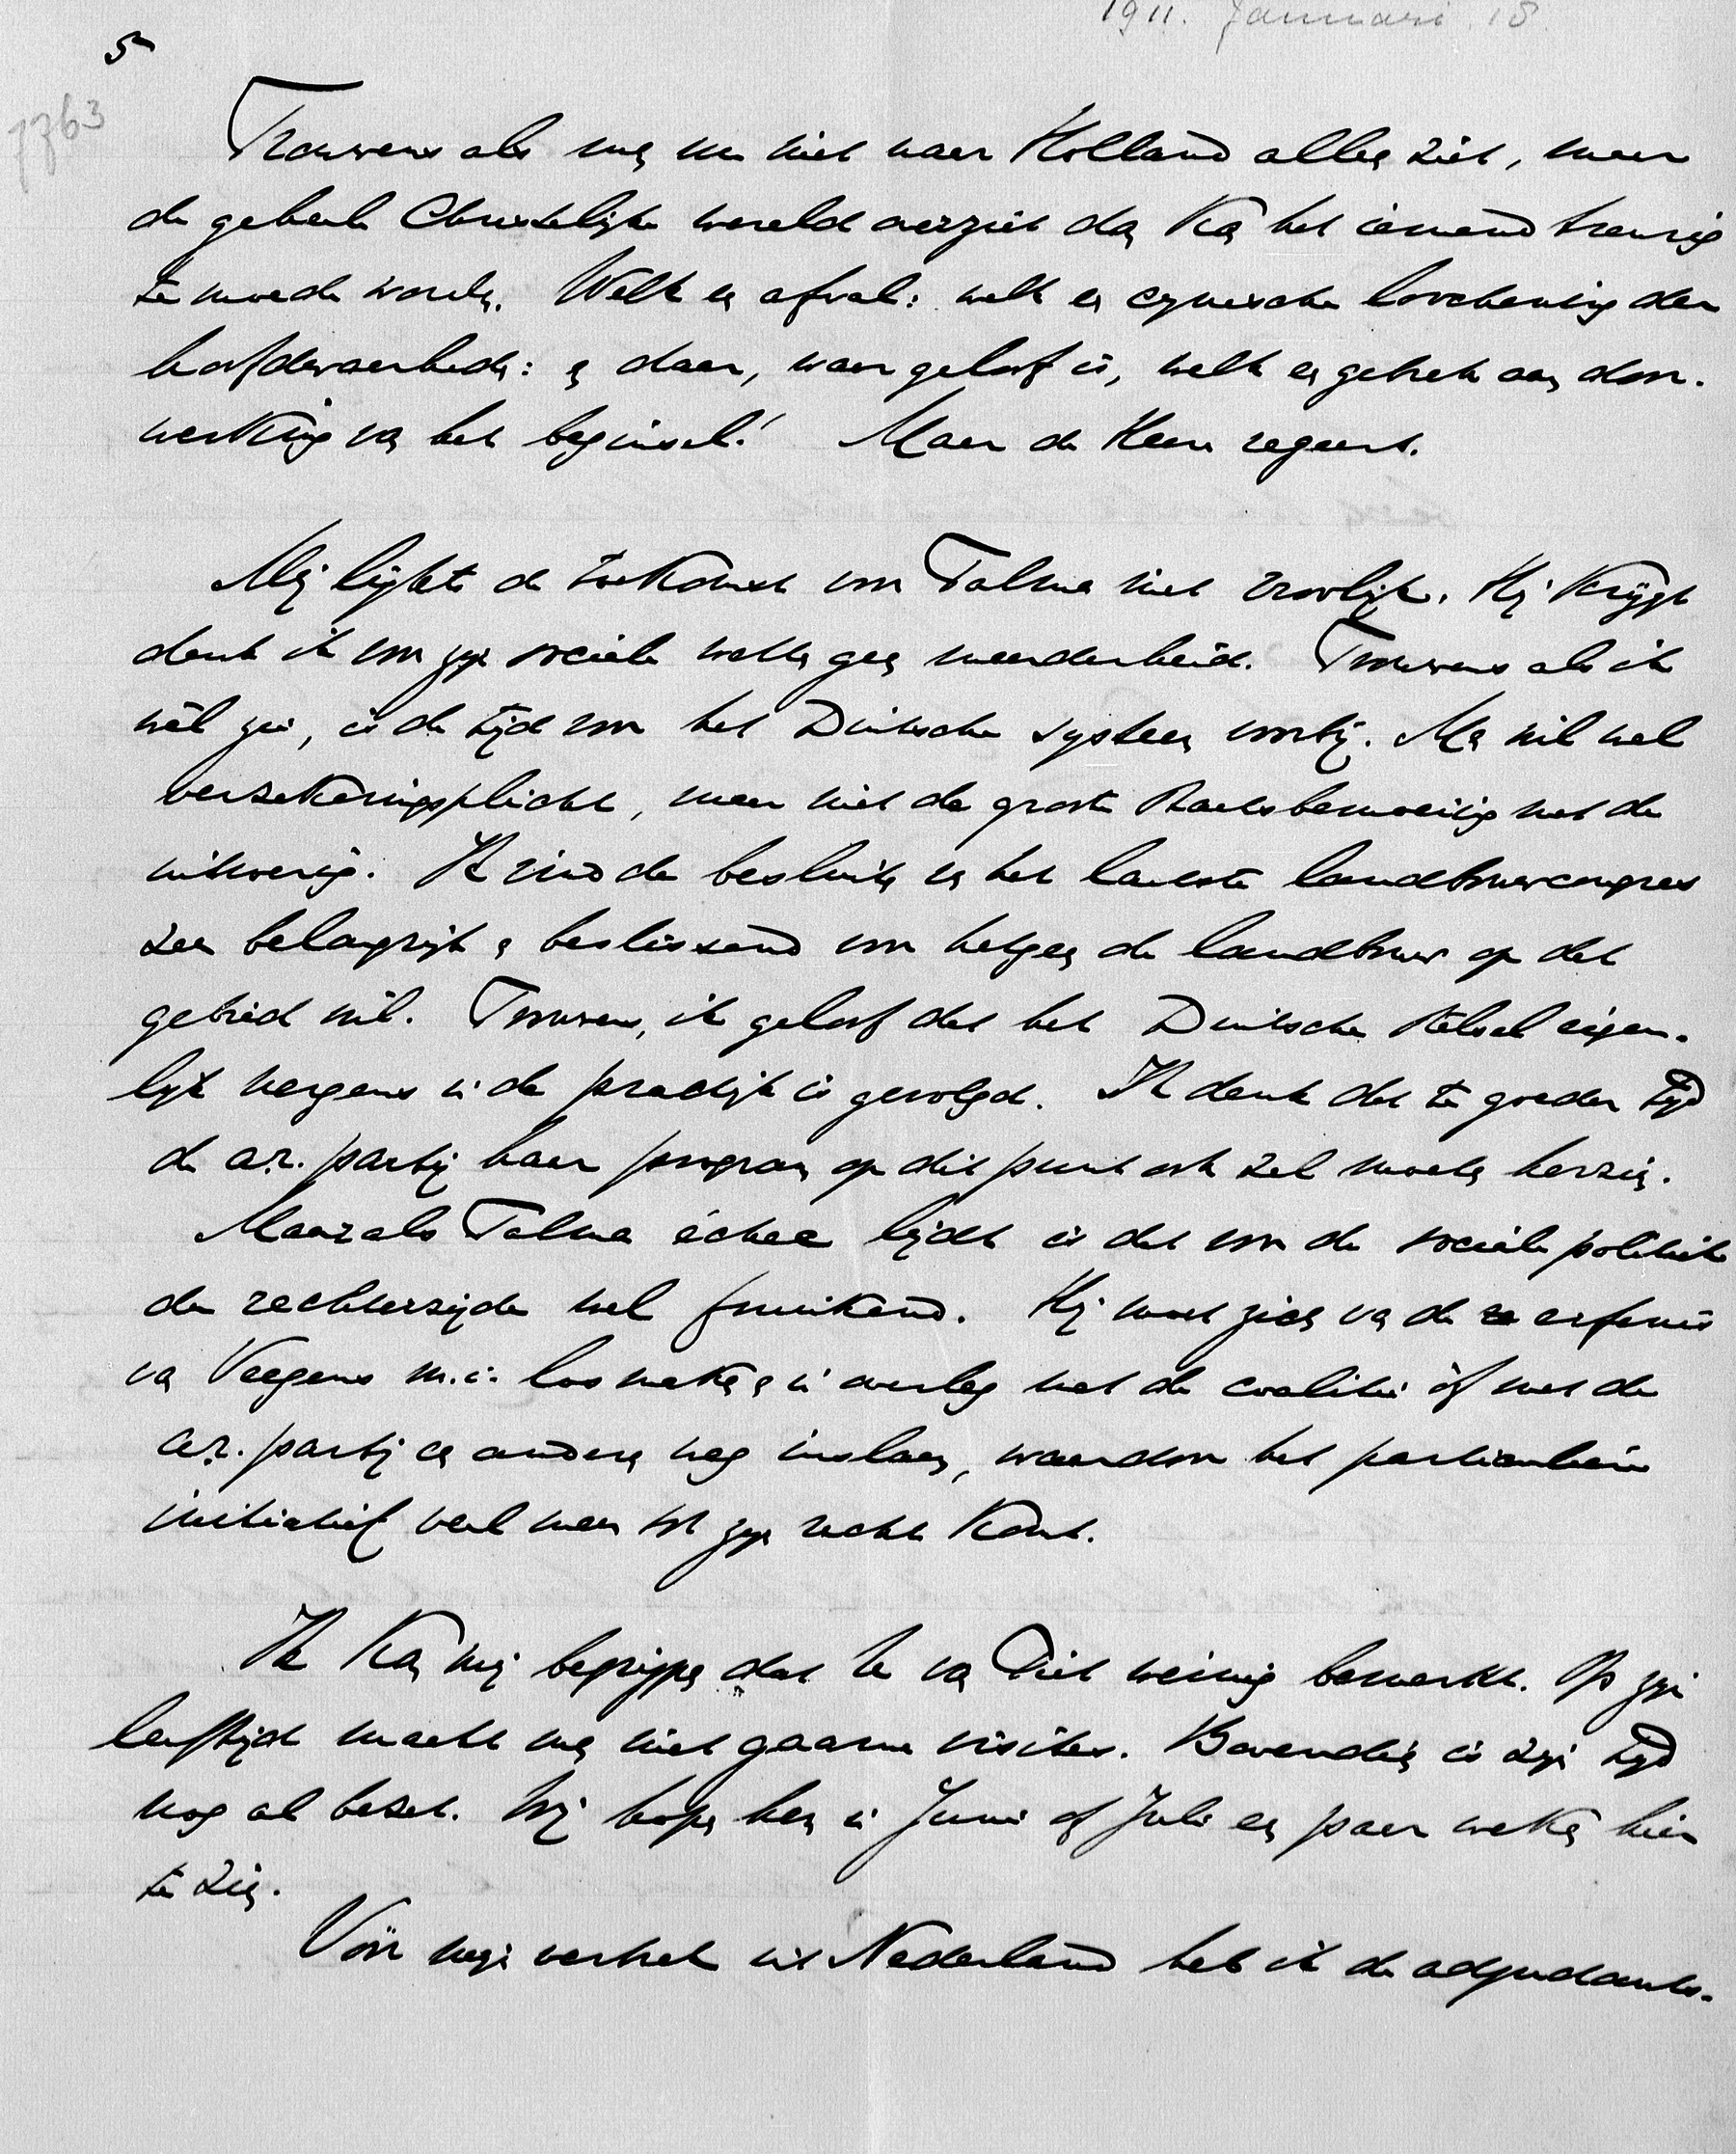 1911. Januari 18
5
7363
Trouwens als men nu niet naar Holland alleen ziet, maar
de geheele Christelijke wereld overziet dan kan het iemand treurig
te moede worden. Welk een afval: welk een cynische loochening der
hoofdwaarheden: en daar, waar geloof is, welk een gebrek aan door-
werking van het beginsel! Maar de Heere regeert.
Mij lijkt de toekomst voor Talma niet vroolijk. Hij krijgt
denk ik voor zijn sociale wetten geen meerderheid. Trouwens als ik
wèl zie, is de tijd voor het Duitsche systeem voorbij. Men wil wel
verzekeringsplicht, maar niet de groote Staatsbemoeiing met de
uitvoering. Ik vind de besluiten van het laatste landbouwcongres
zeer belangrijk en beslissend voor hetgeen de landbouw op dat
gebied wil. Trouwens, ik geloof dat het Duitsche stelsel eigen-
lijk nergens in de practijk is gevolgd. Ik denk dat te goeder tijd
de a.r. partij haar program op dit punt ook zal moeten herzien.
Maar als Talma échec lijdt is dat voor de sociale politiek
der rechterzijde wel fnuikend. Hij moet zich van de erfenis
van Veegens m.i. losmaken en in overleg met de coalitie òf met de
a.r. partij een anderen weg inslaan, waardoor het particuliere
initiatief veel meer tot zijn recht komt.
Ik kan mij begrijpen dat U van Piet weinig bemerkt. Op zijn
leeftijd maakt men niet gaarne visites. Bovendien is zijn tijd
nog al bezet. Wij hopen hem in Juni of Juli een paar weken hier
te zien.
Vóór mijn vertrek uit Nederland heb ik de adjudants-